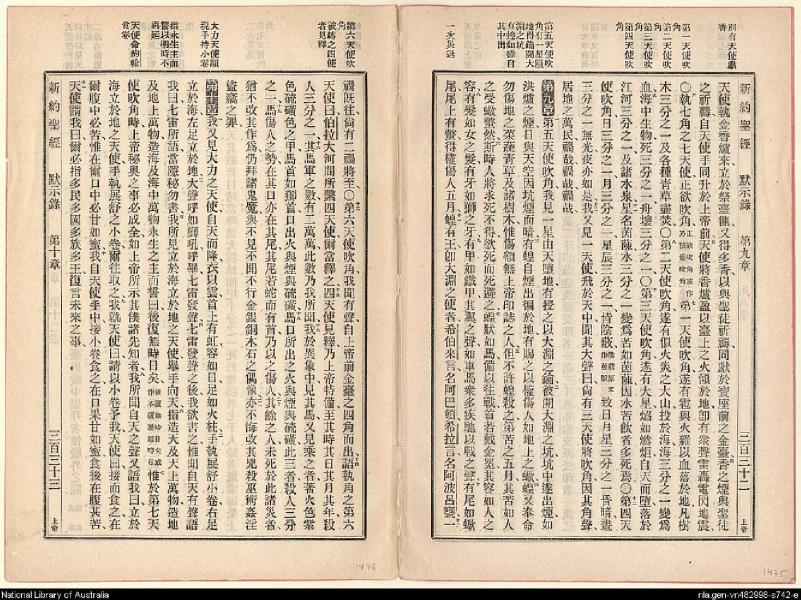 別有天使獻
香
第一天使吹
角
第二天使吹
角
第三天使吹
角
第四天使吹
角
第五天使吹
新約聖經 默示錄 第九章 三百三十二 上帝
天使執金香爐來立於祭臺側又得多香以與聖徒祈禱同獻於寶座前之金臺香之煙與聖徒
之祈禱自天使手同升於上帝前天使將香爐盈以臺上之火傾於地卽有衆聲雷轟電閃地震
〇執七角之七天使正欲吹角 第一天使吹角遂有雹與火雜以血落於地凡樹
木三分之一及各種青草盡焚〇第二天使吹角遂有似火炎之大山投於海海三分之一變爲
血海中生物死三分之一舟壞三分之一〇第三天使吹角遂有大星焰如燃炬自天而墮落於
江河三分之一及諸水泉星名茵蔯水三分之一變爲苦如茵蔯因水苦飲者多死焉〇第四天
使吹角日三分之一月三分之一星辰三分之一皆陰蔽 致日月星三分之一昏暗晝
三分之一無光夜亦如是我又見一天使飛於天中聞其大聲曰尚有三天使將吹角因其角聲
居地之萬民禍哉禍哉禍哉
第九章 第五天使吹角我見一星由天墮地有授之以大淵之鑰彼開大淵之坑坑中遂出煙如
洪爐之煙日與天空因坑煙而暗有蝗自煙出降於地有賜之以權傷人如地上之蠍蝗又奉命
勿傷地之菜蔬青草及諸樹木惟傷額無上帝印誌之人但不許蝗殺之第苦之五月其苦如人
之受蠍螫然斯時人將求死不得欲死而死避之蝗狀如馬備以往戰首若戴金冕其容如人之
容有髮如女之髮有牙如獅之牙有甲如鐵甲其翼之聲如車馬衆多疾馳以戰之聲有尾如蠍
尾尾上有螫得權傷人五月蝗有王卽大淵之使者希伯來言名阿巴頓希拉言名阿波呂翁一
一次災過
第六天使吹
角
被縛之四使
者見釋
大力天使顯
現手持小卷
指永生主而
誓以後時不
再延
天使命約翰
食卷
禍既往尚有二禍將至〇第六天使吹角我聞有聲自上帝前金臺之四角而出語執角之第六
天使曰伯拉大河間所繫四天使爾當釋之四天使見釋乃上帝特備至其時其日其月其年殺
人三分之一其馬軍之數有二萬萬此數乃我所聞我於異象中見其馬又見乘之者著火色紫
色硫磺色之甲馬首如獅首口出火與煙與硫磺馬口所出之火與煙與硫磺此三者殺人三分
之一馬傷人之勢在其口亦在其尾其尾若蛇而有首乃以之傷人其餘之人未死於此諸災者
猶不改其作爲仍拜諸鬼魔與不見不聞不行金銀銅木石之偶像亦不悔改其兇殺巫術姦淫
盜竊之罪
第十章 我又見大力之天使自天而降衣以雲首上有虹容如日足如火柱手執展舒小卷右足
立於海左足立於地大聲呼如獅吼呼畢七雷發聲七雷發聲之後我欲書之惟聞自天有聲語
我曰七雷所語當隱秘勿書我所見立於海立於地之天使舉手向天指造天及天上萬物造地
及地上萬物造海及海中萬物永生之主而誓曰後復無時日矣 惟於第七天
使吹角時上帝秘奧之事必成全如上帝所示其僕諸先知者我所聞自天之聲又語我曰立於
海立於地之天使手執展舒之小卷爾往取之我就天使曰請以小卷予我天使曰接而食之在
爾腹中必苦惟在爾口中必甘如蜜我自天使手中接小卷食之在口果甘如蜜食後在腹甚苦
天使謂我曰爾必指多民多國多族多王復言未來之事
新約聖經 默示錄 第十章 三百三十三 上帝
1476
1475
National Library of Australia
nla.gen-vn482998-s742-e